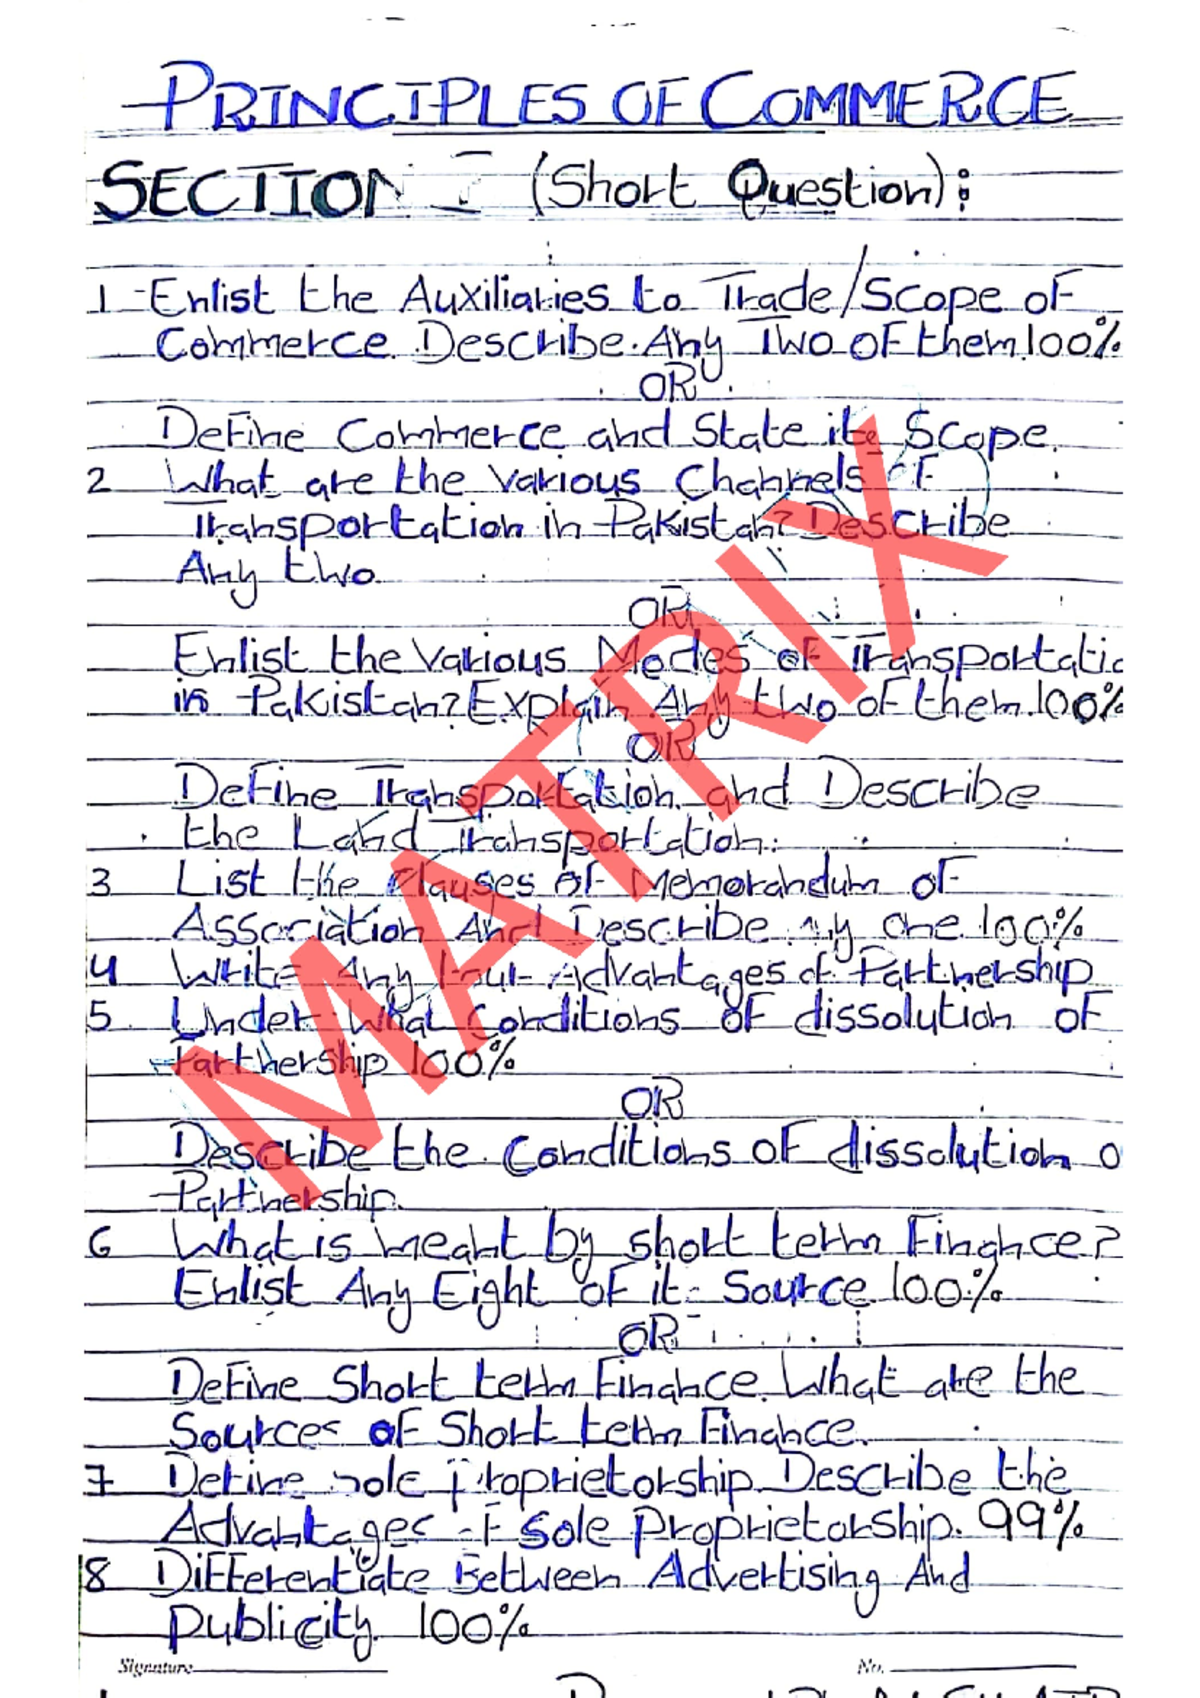 PRINCIPLES OF COMMERCE
SECTION I (Short Question):
1 Enlist the Auxiliaries to Trade/Scope of
Commerce. Describe Any Two of them 100%
OR
Define Commerce and State its Scope.
2 What are the Various Channels of
Transportation in Pakistan? Describe
Any two.
OR
Enlist the Various Modes of Transportatio
in Pakistan? Explain Any two of them. 100%
OR
Define Transportation and Describe
the Land Transportation.
3 List the Clauses of Memorandum of
Association And Describe any one 100%
4 Write Any Four Advantages of Partnership
5. Under What Conditions of dissolution of
Partnership 100%
OR
Describe the Conditions of dissolution o
Partnership.
6 What is meant by short term Finance?
Enlist Any Eight of it. Source 100%
OR
Define Short term Finance. What are the
Sources of Short term Finance.
7 Define Sole Proprietorship. Describe the
Advantages of Sole Proprietorship. 99%
8 Differentiate Between Advertising And
Publicity. 100%
Signature No.
MATRIX